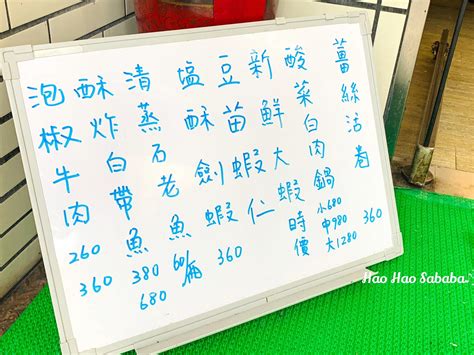 薑絲活卷 360
酸菜白肉鍋 小680 中980 大1280
新鮮大蝦 時價
豆苗蝦仁
塩酥劍蝦 360
清蒸石老魚 60/兩
酥炸白帶魚 380 680
泡椒牛肉 260 360
Hao Hao Sababa